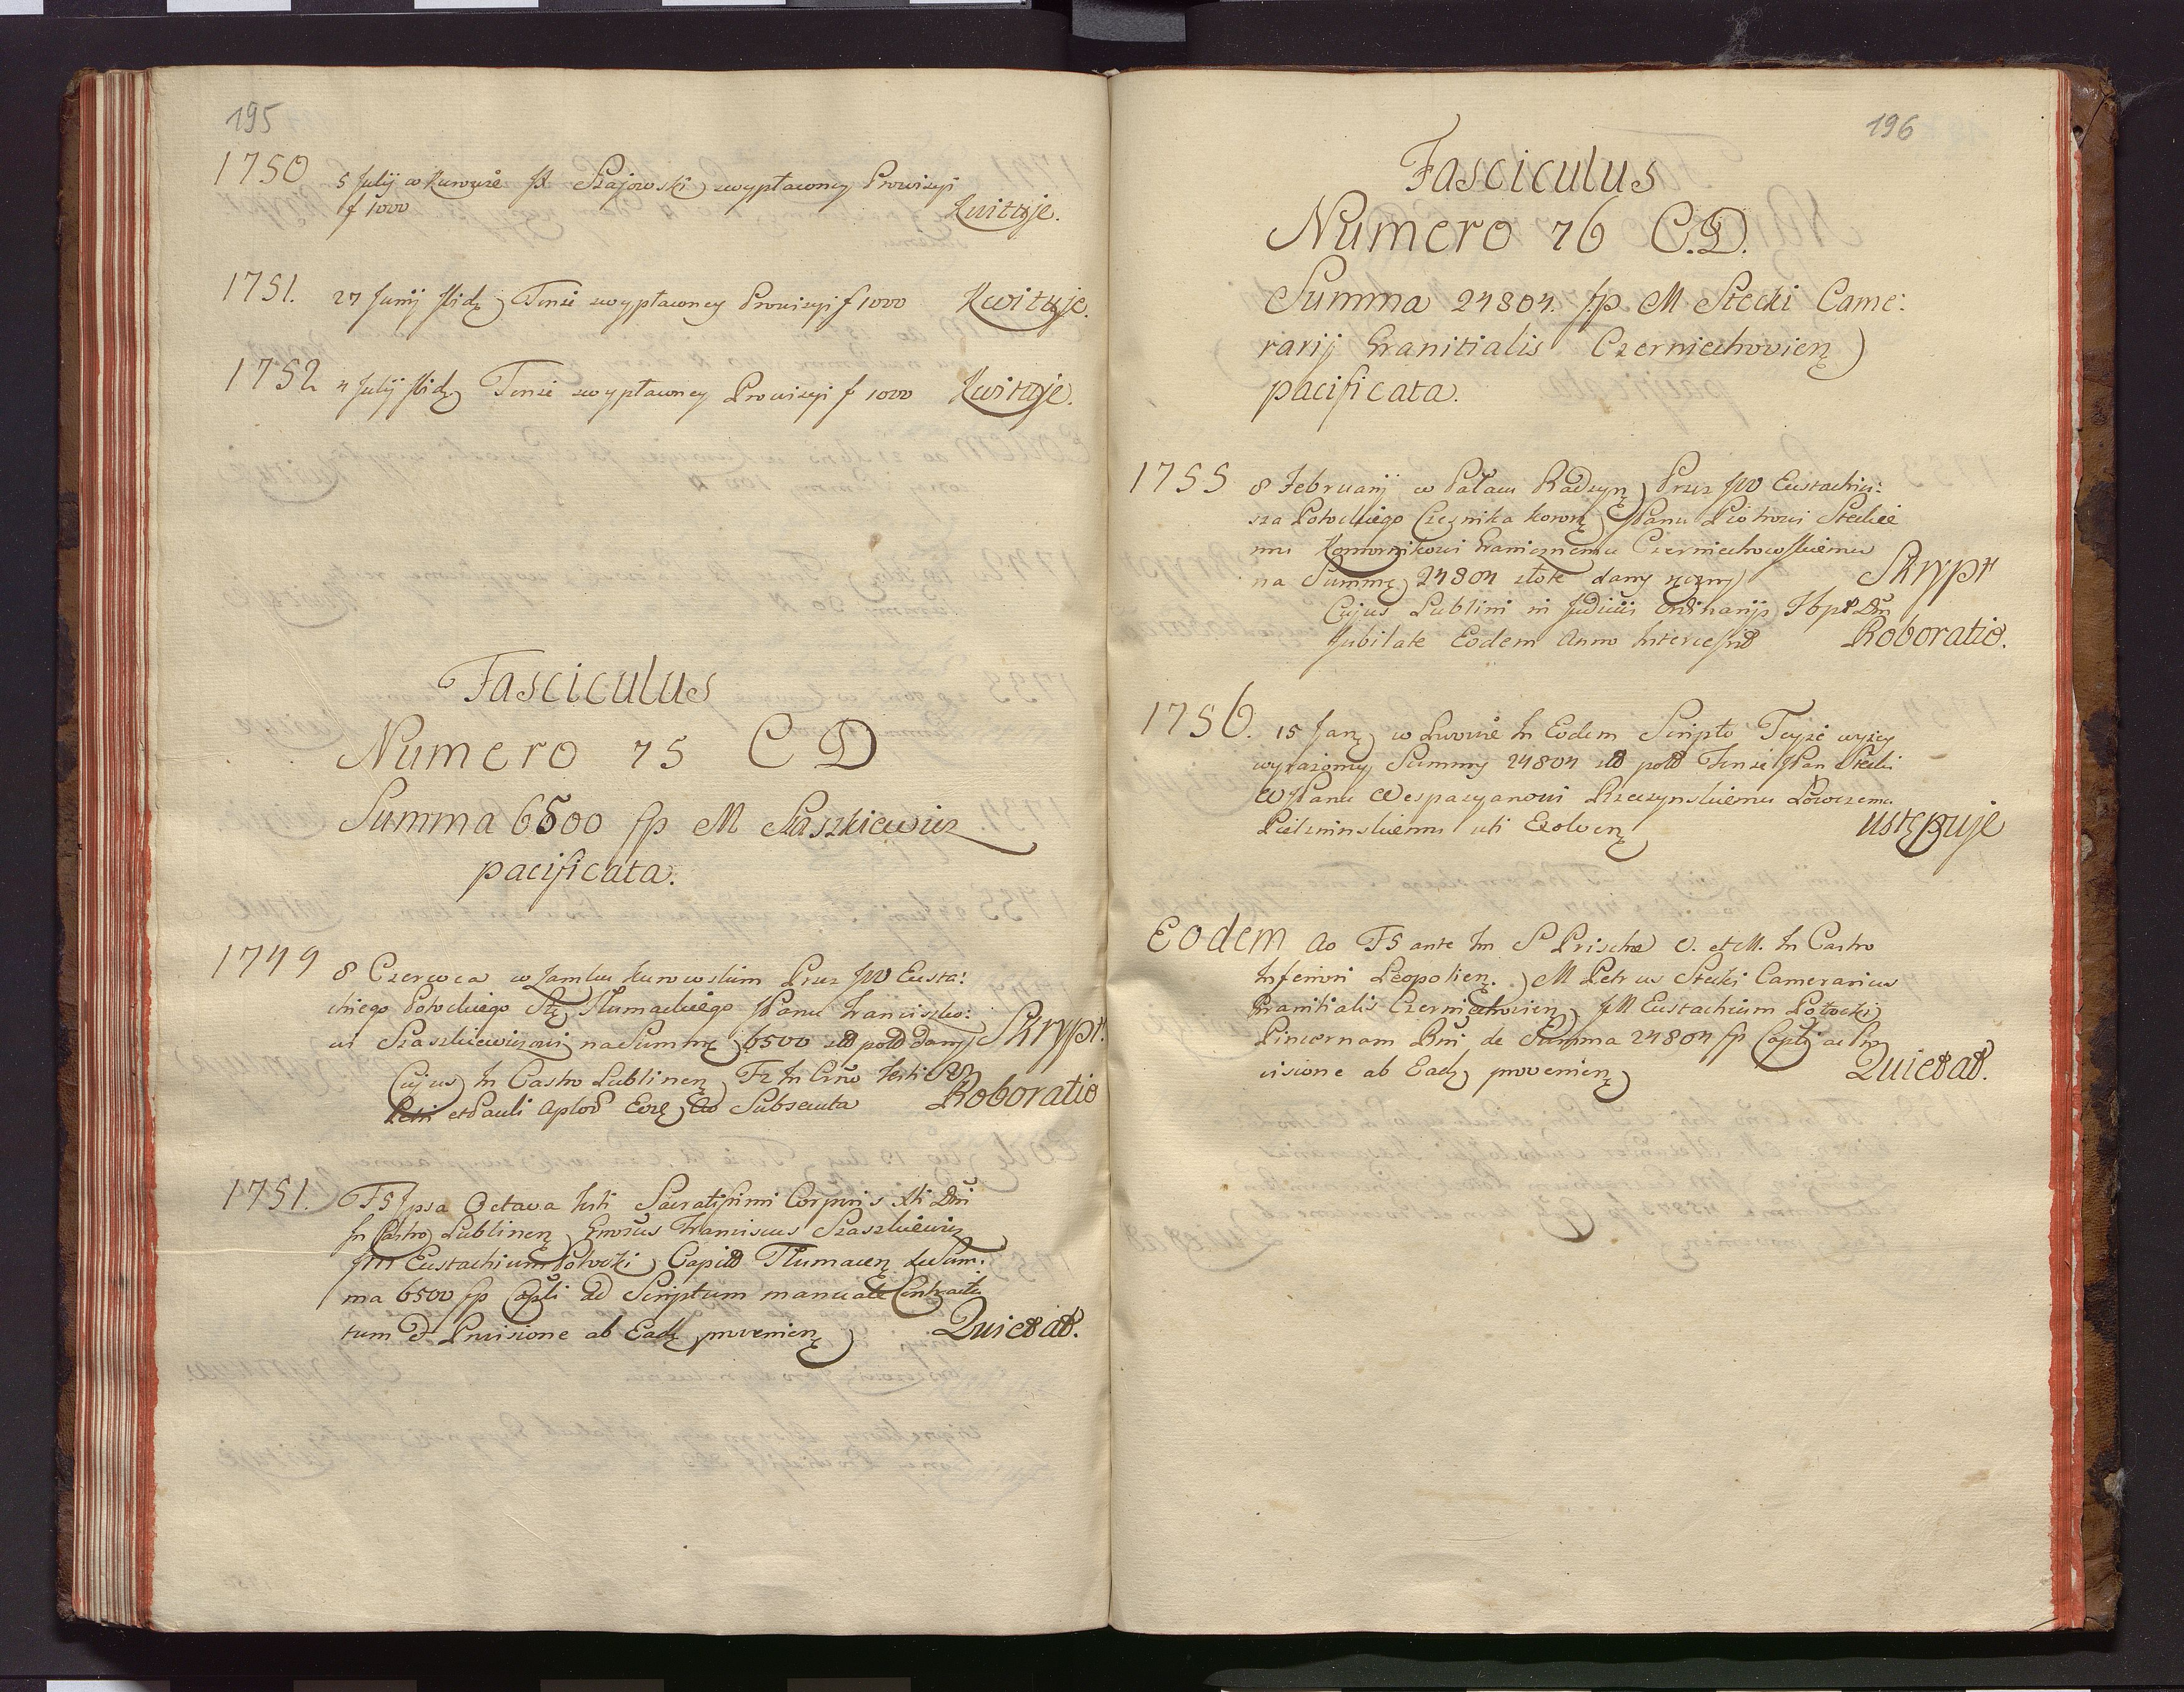 195
1750 5 Julij w Kurowie JP Szajowski z wypłaconey Prowizyi
f 1000 Kwituje.
1751. 27 Junij Ibidę Tenże z wypłaconey Prowizyi f 1000 Kwituje.
1752 4 Julij Ibidę Tenże z wypłaconey Prowizyi f 1000 Kwituje.
Fasciculus
Numero 75 C D
Summa 6500 fp M Szaszkiewicz
pacificata.
1749 8 Czerwca w Zamku Kurowskim Przez JW Eusta:
chiego Potockiego Stę Tłumackiego JPanu Franciszko:
wi Szaszkiewiczowi na Summę 6500 zł pol dany Skrypt.
Cujus In Castro Lublinen F2 In Crño festi SS
Petri et Pauli Aplor Eoz Ao Subsecuta Roboratio
1751. F5 Ipsa Octava festi Sacratissimi Corporis Xti Dñi
In Castro Lublinen Gñosus Franciscus Szaszkiewicz
JM Eustachium Potocki Capit Tłumacen de Sum:
ma 6500 fp Capli ad Scriptum manuale Contracta
tum et Provisione ab Eadę provenien Quietat.
196
Fasciculus
Numero 76 C.D.
Summa 24804. fp M Stecki Came:
rarij Granitialis Czerniechovien
pacificata.
1755 8 Februarij w Pałacu Radzyn Przez JW Eustachiu:
sza Potockiego Czesnika Koron JPanu Piotrowi Steckie
mu Komornikowi Granicznemu Czerniechowskiemu
na Summę 24804 złote dany ręczny Skrypt
Cujus Lublini in Judiciis Ordinarijs Dñi
Jubilate Eodem Anno Intercessit Roboratio.
1756. 15 Janę w Lwowie In Eodem Scripto Teyże wyżey
wyrażoney Summy 24804 zł pol Tenże JPan Stecki
WJPanu Wespazyanowi Rzeczynskiemu Łowczemu
uti Exolven ustępuje
Eodem Ao F5 ante Fm S Priscæ V. et M. In Castro
Inferiori Leopolien. M Petrus Stecki Camerarius
Granitialis Czerniechovien JM Eustachium Potocki
Pincernam Rni de Summa 24804 fp Capli ac Pro
visione ab Eadę provenien Quietat.